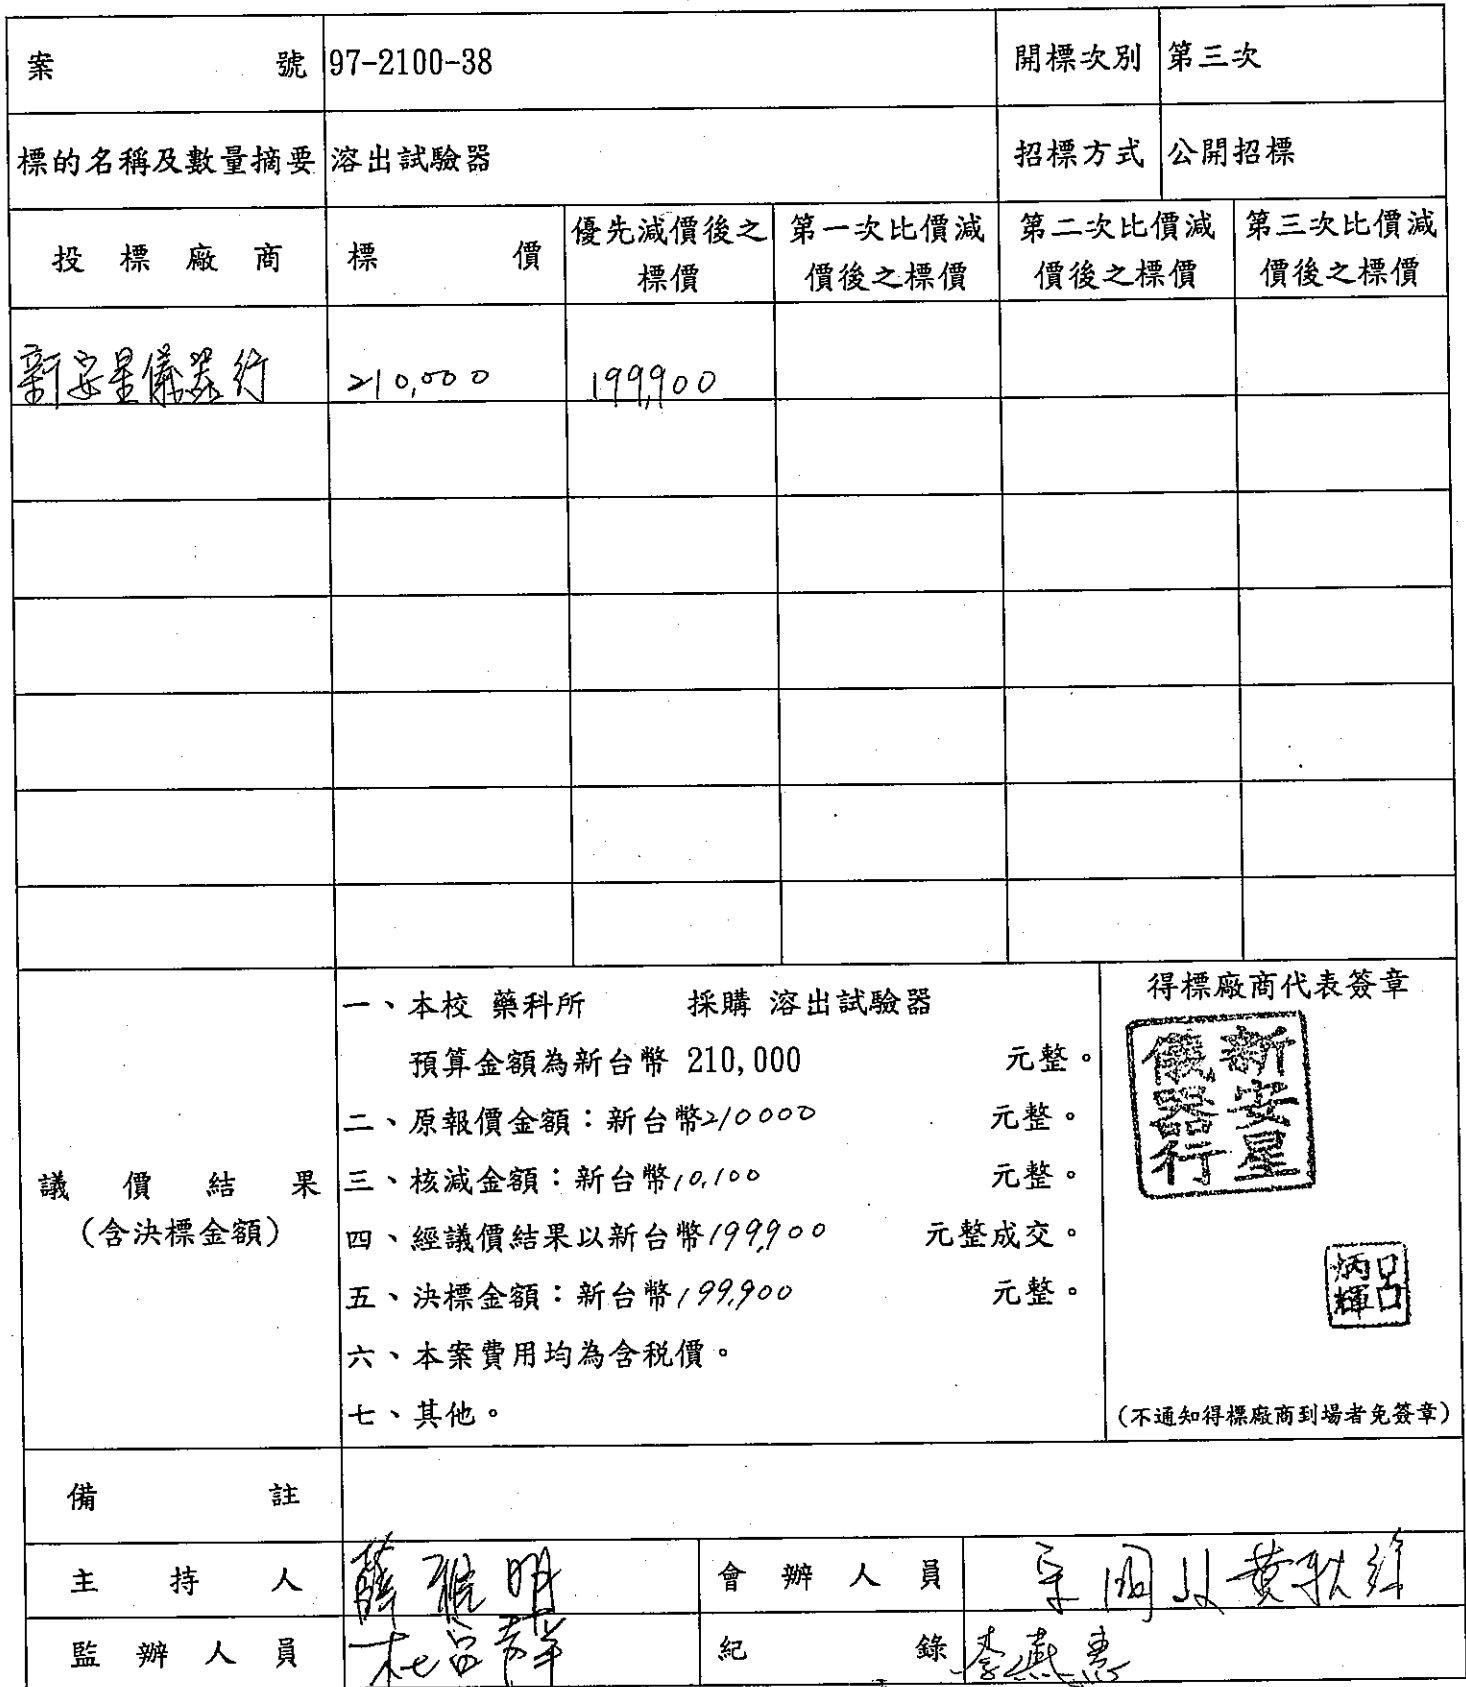 案 號 97-2100-38 開標次別 第三次
標的名稱及數量摘要 溶出試驗器 招標方式 公開招標
投標廠商 標 價 優先減價後之標價 第一次比價減價後之標價 第二次比價減價後之標價 第三次比價減價後之標價
新安星儀器行 210,000 199,900
議價結果
(含決標金額)
一、本校 藥科所 採購 溶出試驗器
預算金額為新台幣 210,000 元整。
二、原報價金額：新台幣210000 元整。
三、核減金額：新台幣10,100 元整。
四、經議價結果以新台幣199,900 元整成交。
五、決標金額：新台幣199,900 元整。
六、本案費用均為含稅價。
七、其他。
得標廠商代表簽章
新安星
儀器行
呂
炳輝
(不通知得標廠商到場者免簽章)
備 註
主 持 人 薛雅明 會 辦 人 員
監 辦 人 員 紀 錄 李燕惠